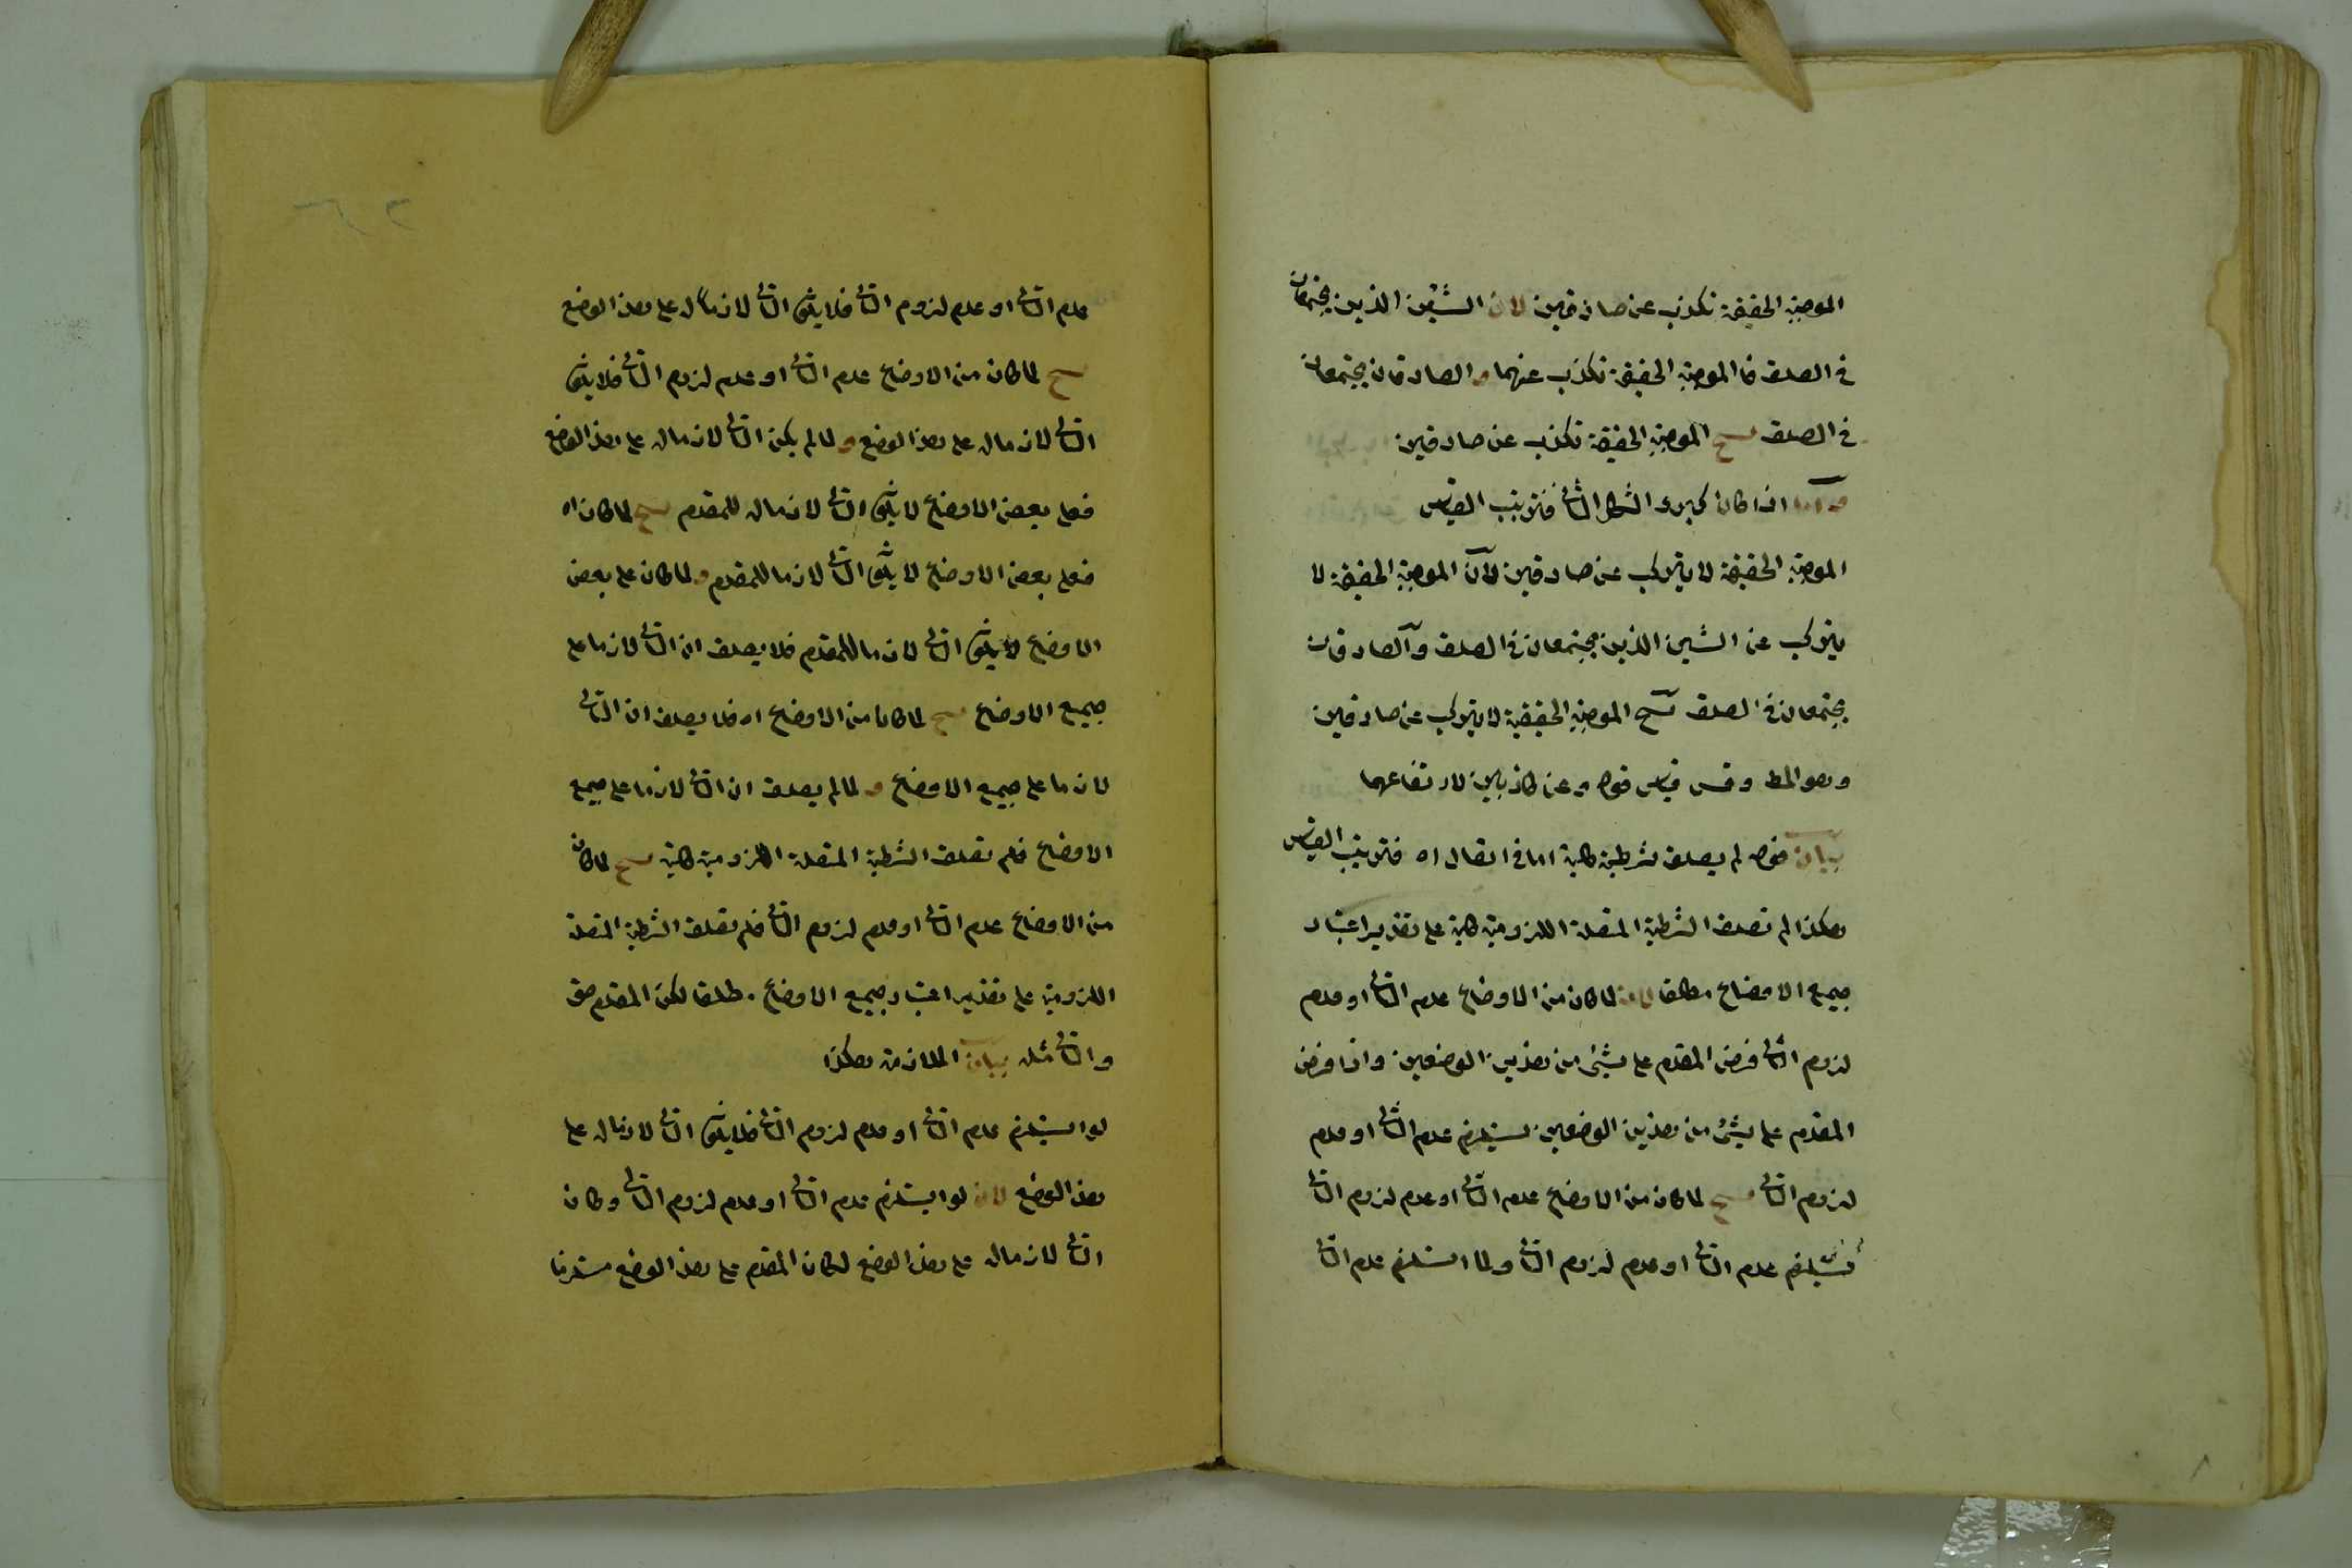 الموجبة الحقيقة تكذب عن صادقين لان الشيئين الذين يجتمعان
في الصدق فا الموجبة الحقيقة تكذب عنهما و الصادقان يجتمعان
في الصدق ينتج الموجبة الحقيقة تكذب عن صادقين
واما اذا كان كبرى الشكل الثا فترتيب القياس
الموجبة الحقيقة لا يتركب عن صادقين لان الموجبة الحقيقة لا
يتركب عن الشيئين الذين يجتمعان في الصدق والصادقان
يجتمعان في الصدق ينتج الموجبة الحقيقية لا يتركب عن صادقين
وهو المط وقس قياس قوله وعن كاذبين لارتفاعهما
بيان قوله لم يصدق شرطية كلية اما في اتصال اه فترتيب القياس
هكذا لم تصدق الشرطية المتصلة اللزومية كلية على تقدير اعتبار
جميع الاوضاع مطلقا لانه لما كان من الاوضاع عدم التا او عدم
لزوم التا فرض المقدم على شيئ من هذين الوضعين واذا فرض
المقدم على شيئ من هذين الوضعين يستلزم عدم التا او عدم
لزوم التا ينتج لما كان من الاوضاع عدم التا او عدم لزوم التا
فيستلزم عدم التا او عدم لزوم التا ولما استلزم عدم التا
عدم التا او عدم لزوم التا فلا يكون التا لازما له على هذا الوضع
ينتج لما كان من الاوضاع عدم التا او عدم لزوم التا فلا يكون
التا لازما له على هذا الوضع و لما لم يكن التا لازما له على هذا الوضع
فعلى بعض الاوضاع لا يكون التا لازما له للمقدم ينتج لما كان اه
فعلى بعض الاوضاع لا يكون التا لازما للمقدم و لما كان على بعض
الاوضاع لا يكون التا لازما للمقدم فلا يصدق ان التا لازما على
جميع الاوضاع ينتج لما كان من الاوضاع اه فلا يصدق ان التا
لازما على جميع الاوضاع و لما لم يصدق ان التا لازما على جميع
الاوضاع فلم تصدق الشرطية المتصلة اللزومية كلية ينتج لما كان
من الاوضاع عدم التا او عدم لزوم التا فلم تصدق الشرطية المتصلة
اللزومية على تقدير اعتبار جميع الاوضاع مطلقا لكن المقدم حق
والتا مثله بيان الملازمة هكذا
لو استلزم عدم التا او عدم لزوم التا فلا يكون التا لازما له على
هذا الوضع لانه لو استلزم عدم التا او عدم لزوم التا وكان
التا لازما له على هذا الوضع لكان المقدم على هذا الوضع مستلزما